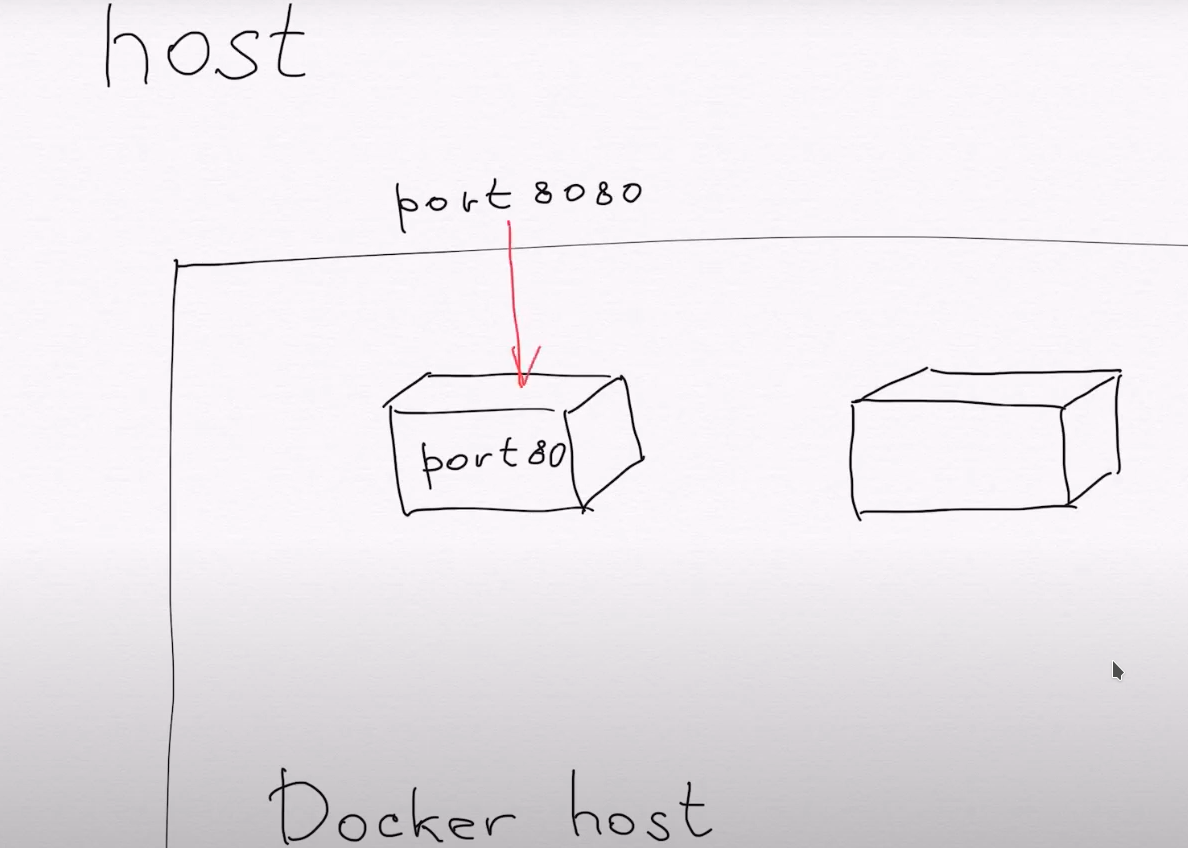 host
port 8080
port 80
Docker host